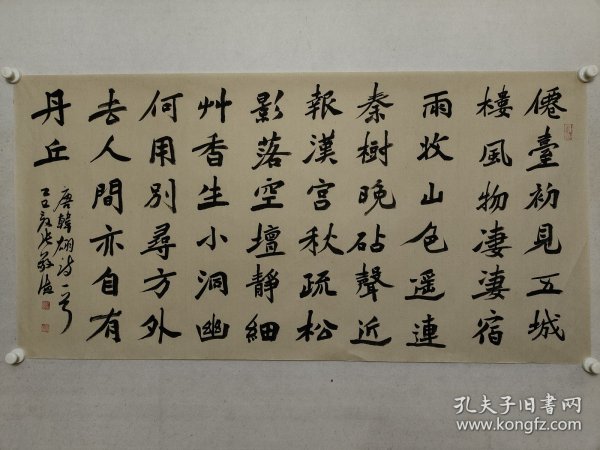 僊臺初見五城
樓風物凄淒宿
雨收山色遥連
秦樹晚砧聲近
報漢宮秋疏松
影落空壇靜細
艸香生小洞幽
何用別尋方外
去人間亦自有
丹丘
唐韓翃詩一首
孔夫子旧书网
www.kongfz.com